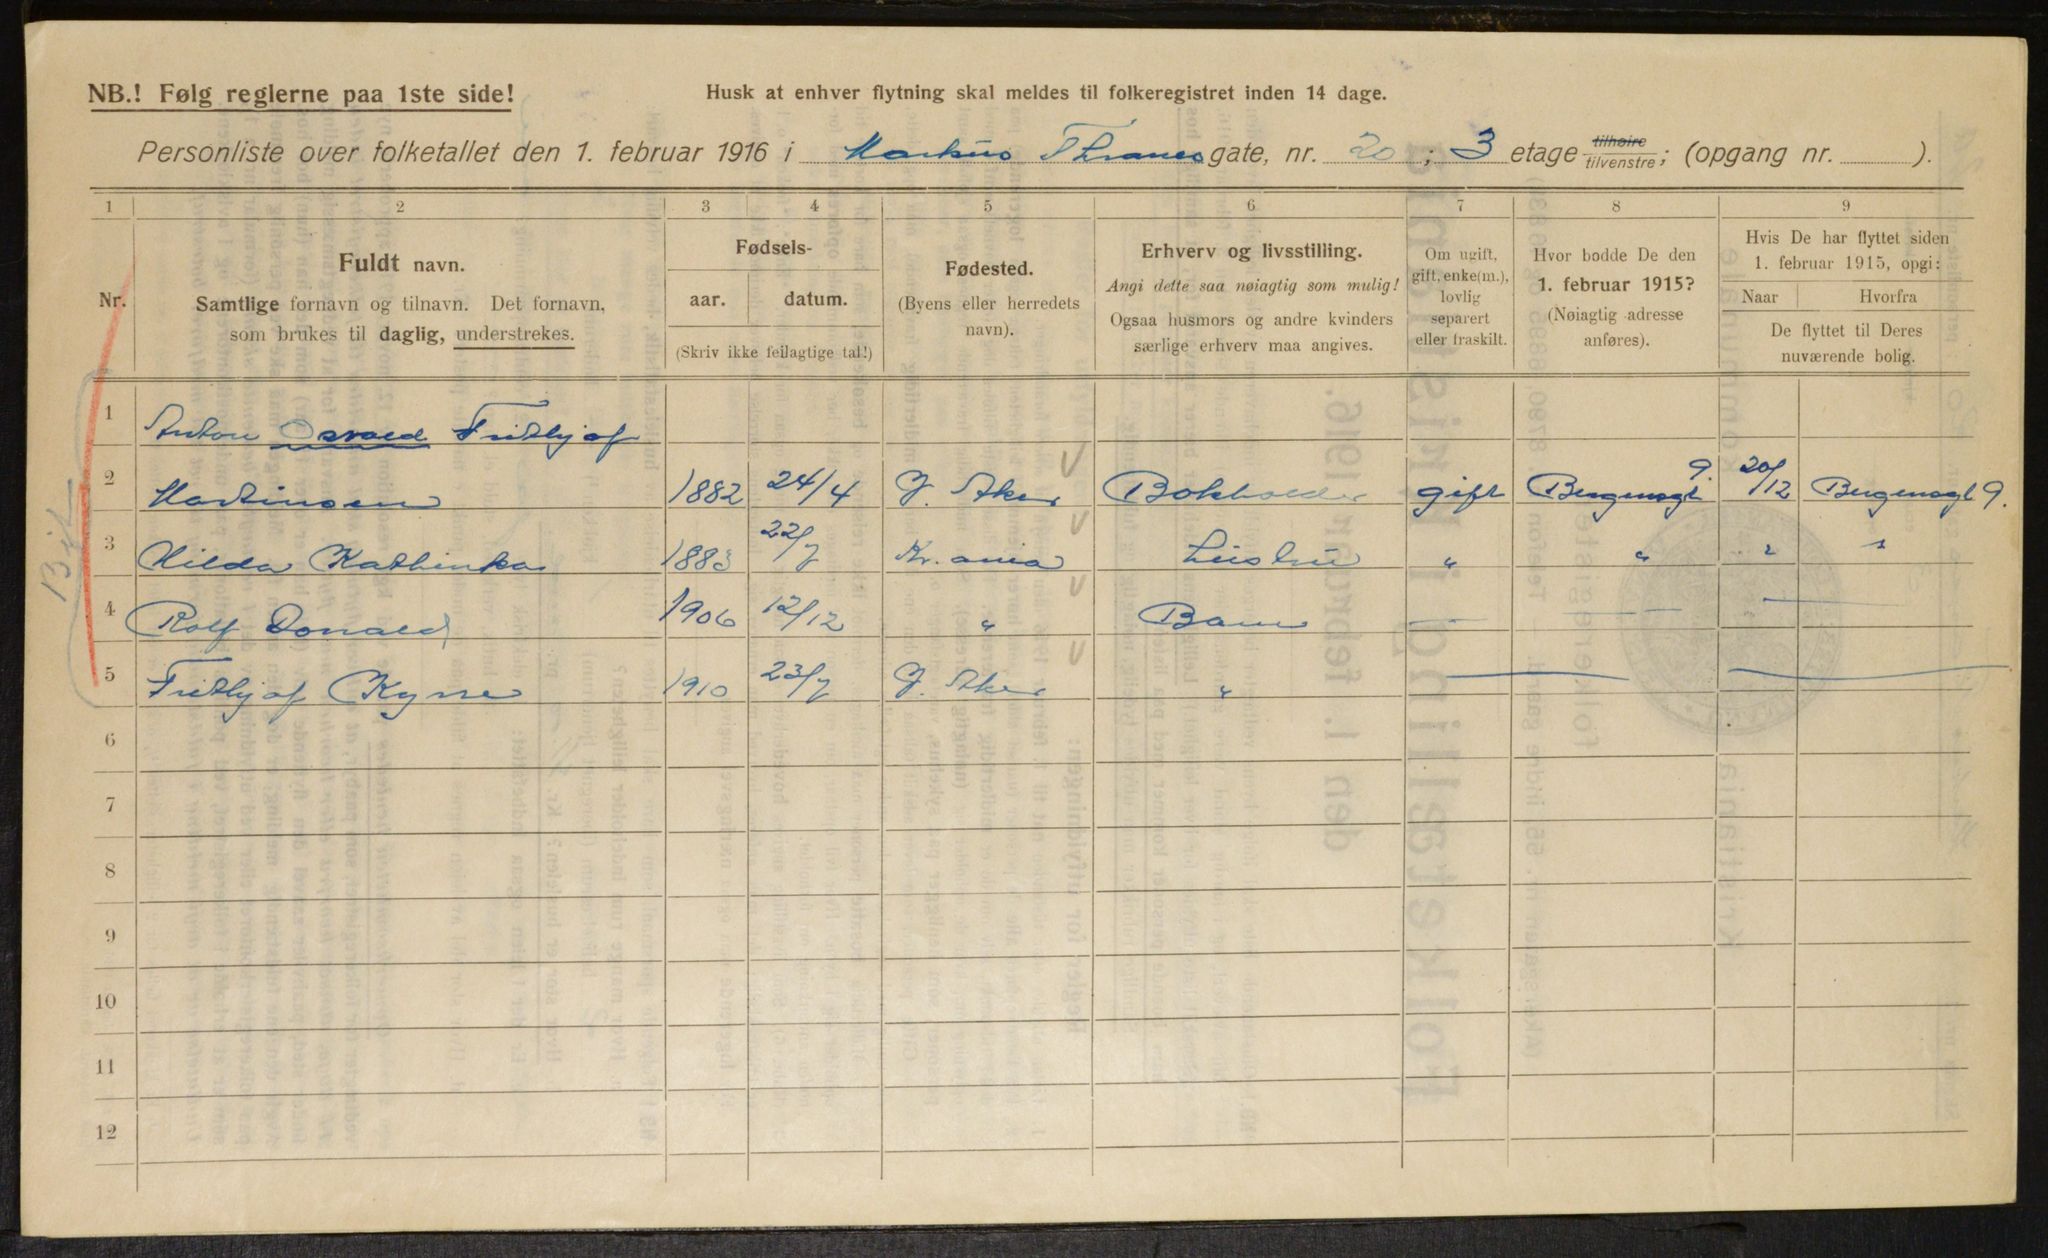 NB.! Følg reglerne paa 1ste side!
Husk at enhver flytning skal meldes til folkeregistret inden 14 dage.
Personliste over folketallet den 1. februar 1916 i Markus Thranes gate, nr. 20; 3 etage tilhøire tilvenstre; (opgang nr. ).
1 2 3 4 5 6 7 8 9
Nr.
Fuldt navn.
Samtlige fornavn og tilnavn. Det fornavn,
som brukes til daglig, understrekes.
Fødsels-
aar. datum.
(Skriv ikke feilagtige tal!)
Fødested.
(Byens eller herredets
navn).
Erhverv og livsstilling.
Angi dette saa nøiagtig som mulig!
Ogsaa husmors og andre kvinders
særlige erhverv maa angives.
Om ugift,
gift, enke(m.),
lovlig
separert
eller fraskilt.
Hvor bodde De den
1. februar 1915?
(Nøiagtig adresse
anføres).
Hvis De har flyttet siden
1. februar 1915, opgi:
Naar Hvorfra
De flyttet til Deres
nuværende bolig.
1 Anton Osvald Frithjof
2 Martinsen 1882 24/4 Aker Bokholder gift Bergensgt 9. 20/12 Bergensgt 9.
3 Hilda Kathinka 1883 22/7 Kr.ania Hustru " " " "
4 Rolf Donald 1906 12/12 " Barn — — —
5 Frithjof 1910 23/7 Aker "
6
7
8
9
10
11
12